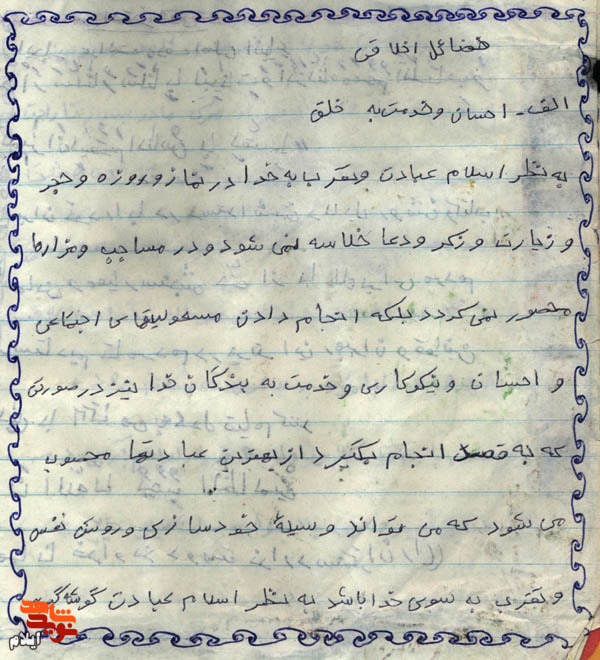 فضائل اخلاقی
الف - احسان و خدمت به خلق
به نظر اسلام عبادت و تقرب به خدا در نماز و روزه و حج
و زیارت و زکر و دعا خلاسه نمی شود و در مساجد و مزارها
محصور نمی گردد بلکه انجام دادن مسئولیتهای اجتماعی
و احسان و نیکوکاری و خدمت به بندگان خدا نیز در صورتی
که به قصد انجام بگیرد از بهترین عبادتها محسوب
می شود که می تواند وسیلهٔ خودسازی و پرورش نفس
و تقرب به سوی خدا باشد به نظر اسلام عبادت گوشه گیری
شاهد
نوید
ایلام